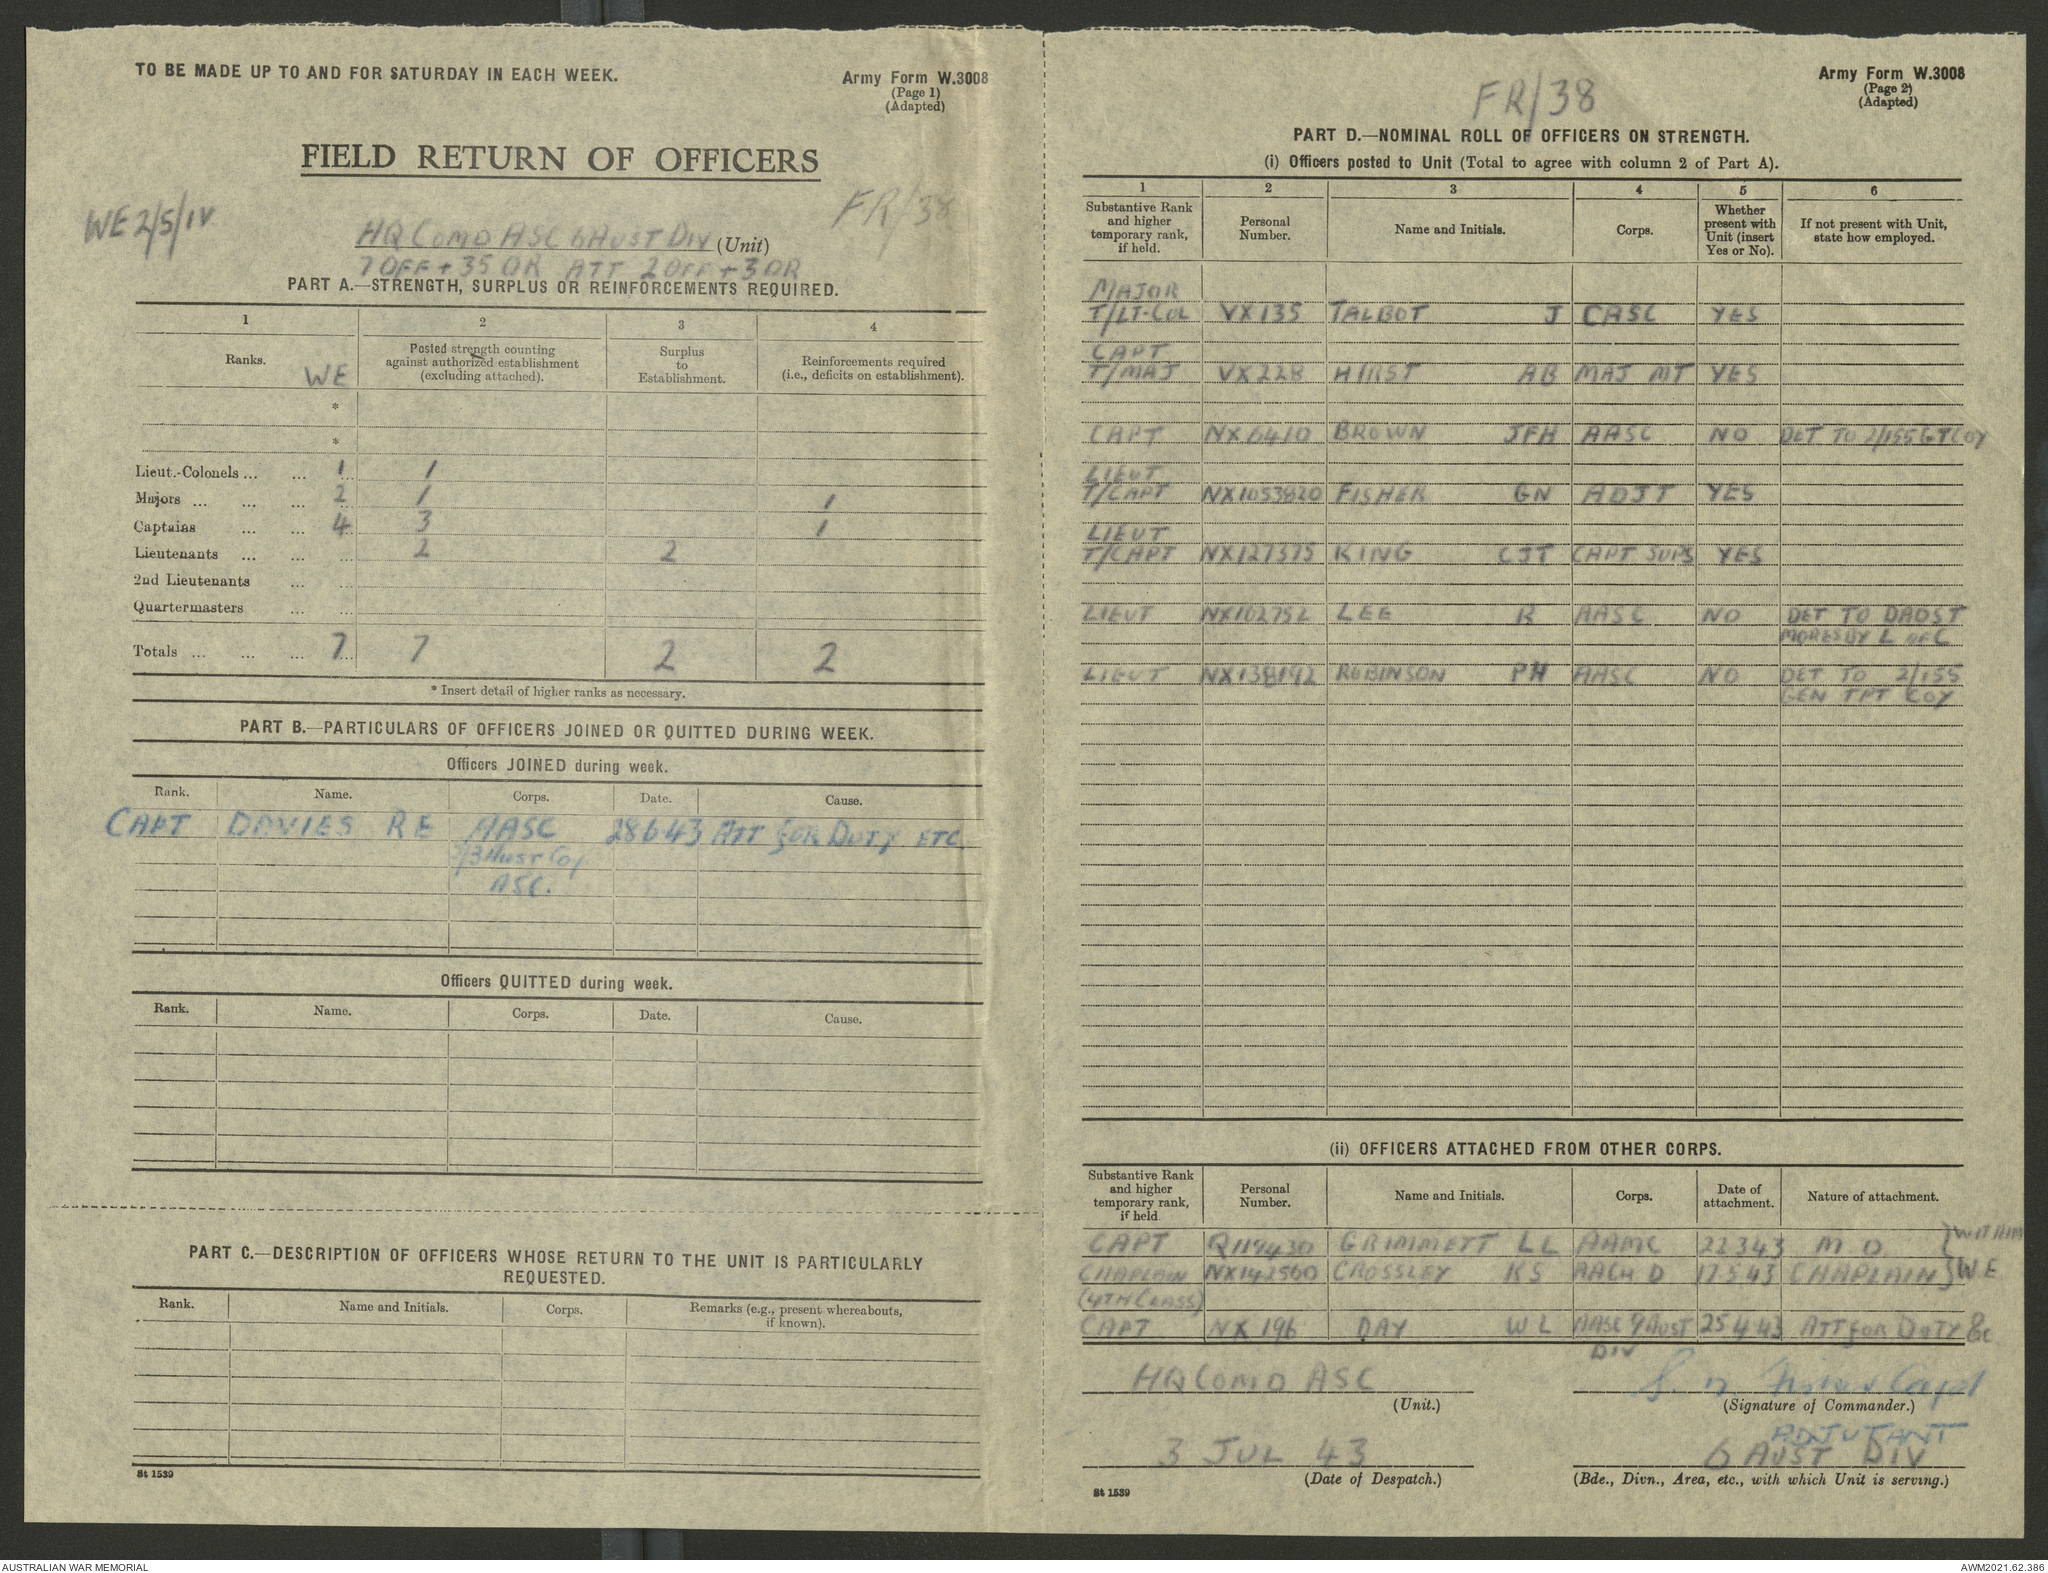 TO BE MADE UP TO AND FOR SATURDAY IN EACH WEEK.
Army Form W.3008
(Page 1)
(Adapted)
FIELD RETURN OF OFFICERS
WE 2/5/IV
FR/38
HQ COMD ASC 6 AUST DIV (Unit)
7 OFF + 35 OR ATT 2 OFF + 3 OR
PART A.—STRENGTH, SURPLUS OR REINFORCEMENTS REQUIRED.
1 2 3 4
Ranks. WE
Posted strength counting against authorized establishment (excluding attached).
Surplus to Establishment.
Reinforcements required (i.e., deficits on establishment).
*
*
Lieut.-Colonels ... ... 1 1
Majors ... ... ... 2 1 1
Captains ... ... 4 3 1
Lieutenants ... ... ... 2 2
2nd Lieutenants ... ...
Quartermasters ... ...
Totals ... ... ... 7 7 2 2
* Insert detail of higher ranks as necessary.
PART B.—PARTICULARS OF OFFICERS JOINED OR QUITTED DURING WEEK.
Officers JOINED during week.
Rank. Name. Corps. Date. Cause.
CAPT DAVIES R E AASC 28 6 43 ATT FOR DUTY ETC
AUST COY
ASC.
Officers QUITTED during week.
Rank. Name. Corps. Date. Cause.
PART C.—DESCRIPTION OF OFFICERS WHOSE RETURN TO THE UNIT IS PARTICULARLY
REQUESTED.
Rank. Name and Initials. Corps. Remarks (e.g., present whereabouts, if known).
St 1539
FR/38
Army Form W.3008
(Page 2)
(Adapted)
PART D.—NOMINAL ROLL OF OFFICERS ON STRENGTH.
(i) Officers posted to Unit (Total to agree with column 2 of Part A).
1 2 3 4 5 6
Substantive Rank and higher temporary rank, if held.
Personal Number.
Name and Initials.
Corps.
Whether present with Unit (insert Yes or No).
If not present with Unit, state how employed.
MAJOR
T/LT-COL VX135 TALBOT J CASC YES
CAPT
T/MAJ VX228 HIRST AB MAJ MT YES
CAPT NX6410 BROWN JFH AASC NO DET TO 2/155 GT COY
LIEUT
T/CAPT NX1053820 FISHER GN ADJT YES
LIEUT
T/CAPT NX127575 KING CJT CAPT SUPS YES
LIEUT NX102752 LEE R AASC NO DET TO DADST
MORESBY L OF C
LIEUT NX138192 ROBINSON PH AASC NO DET TO 2/155
GEN TPT COY
(ii) OFFICERS ATTACHED FROM OTHER CORPS.
Substantive Rank and higher temporary rank, if held
Personal Number.
Name and Initials.
Corps.
Date of attachment.
Nature of attachment.
CAPT Q119430 GRIMMETT LL AAMC 22 3 43 M.O } WITHIN
CHAPLAIN NX142560 CROSSLEY KS AACH D 17 5 43 CHAPLAIN } W.E
(4TH CLASS)
CAPT NX 196 DAY WL AASC 9 AUST 25 4 43 ATT FOR DUTY &c
DIV
HQ COMD ASC
(Unit.)
G. N Fisher Capt
(Signature of Commander.)
ADJUTANT
3 JUL 43
(Date of Despatch.)
6 AUST DIV
(Bde., Divn., Area, etc., with which Unit is serving.)
St 1539
AUSTRALIAN WAR MEMORIAL
AWM2021.62.386